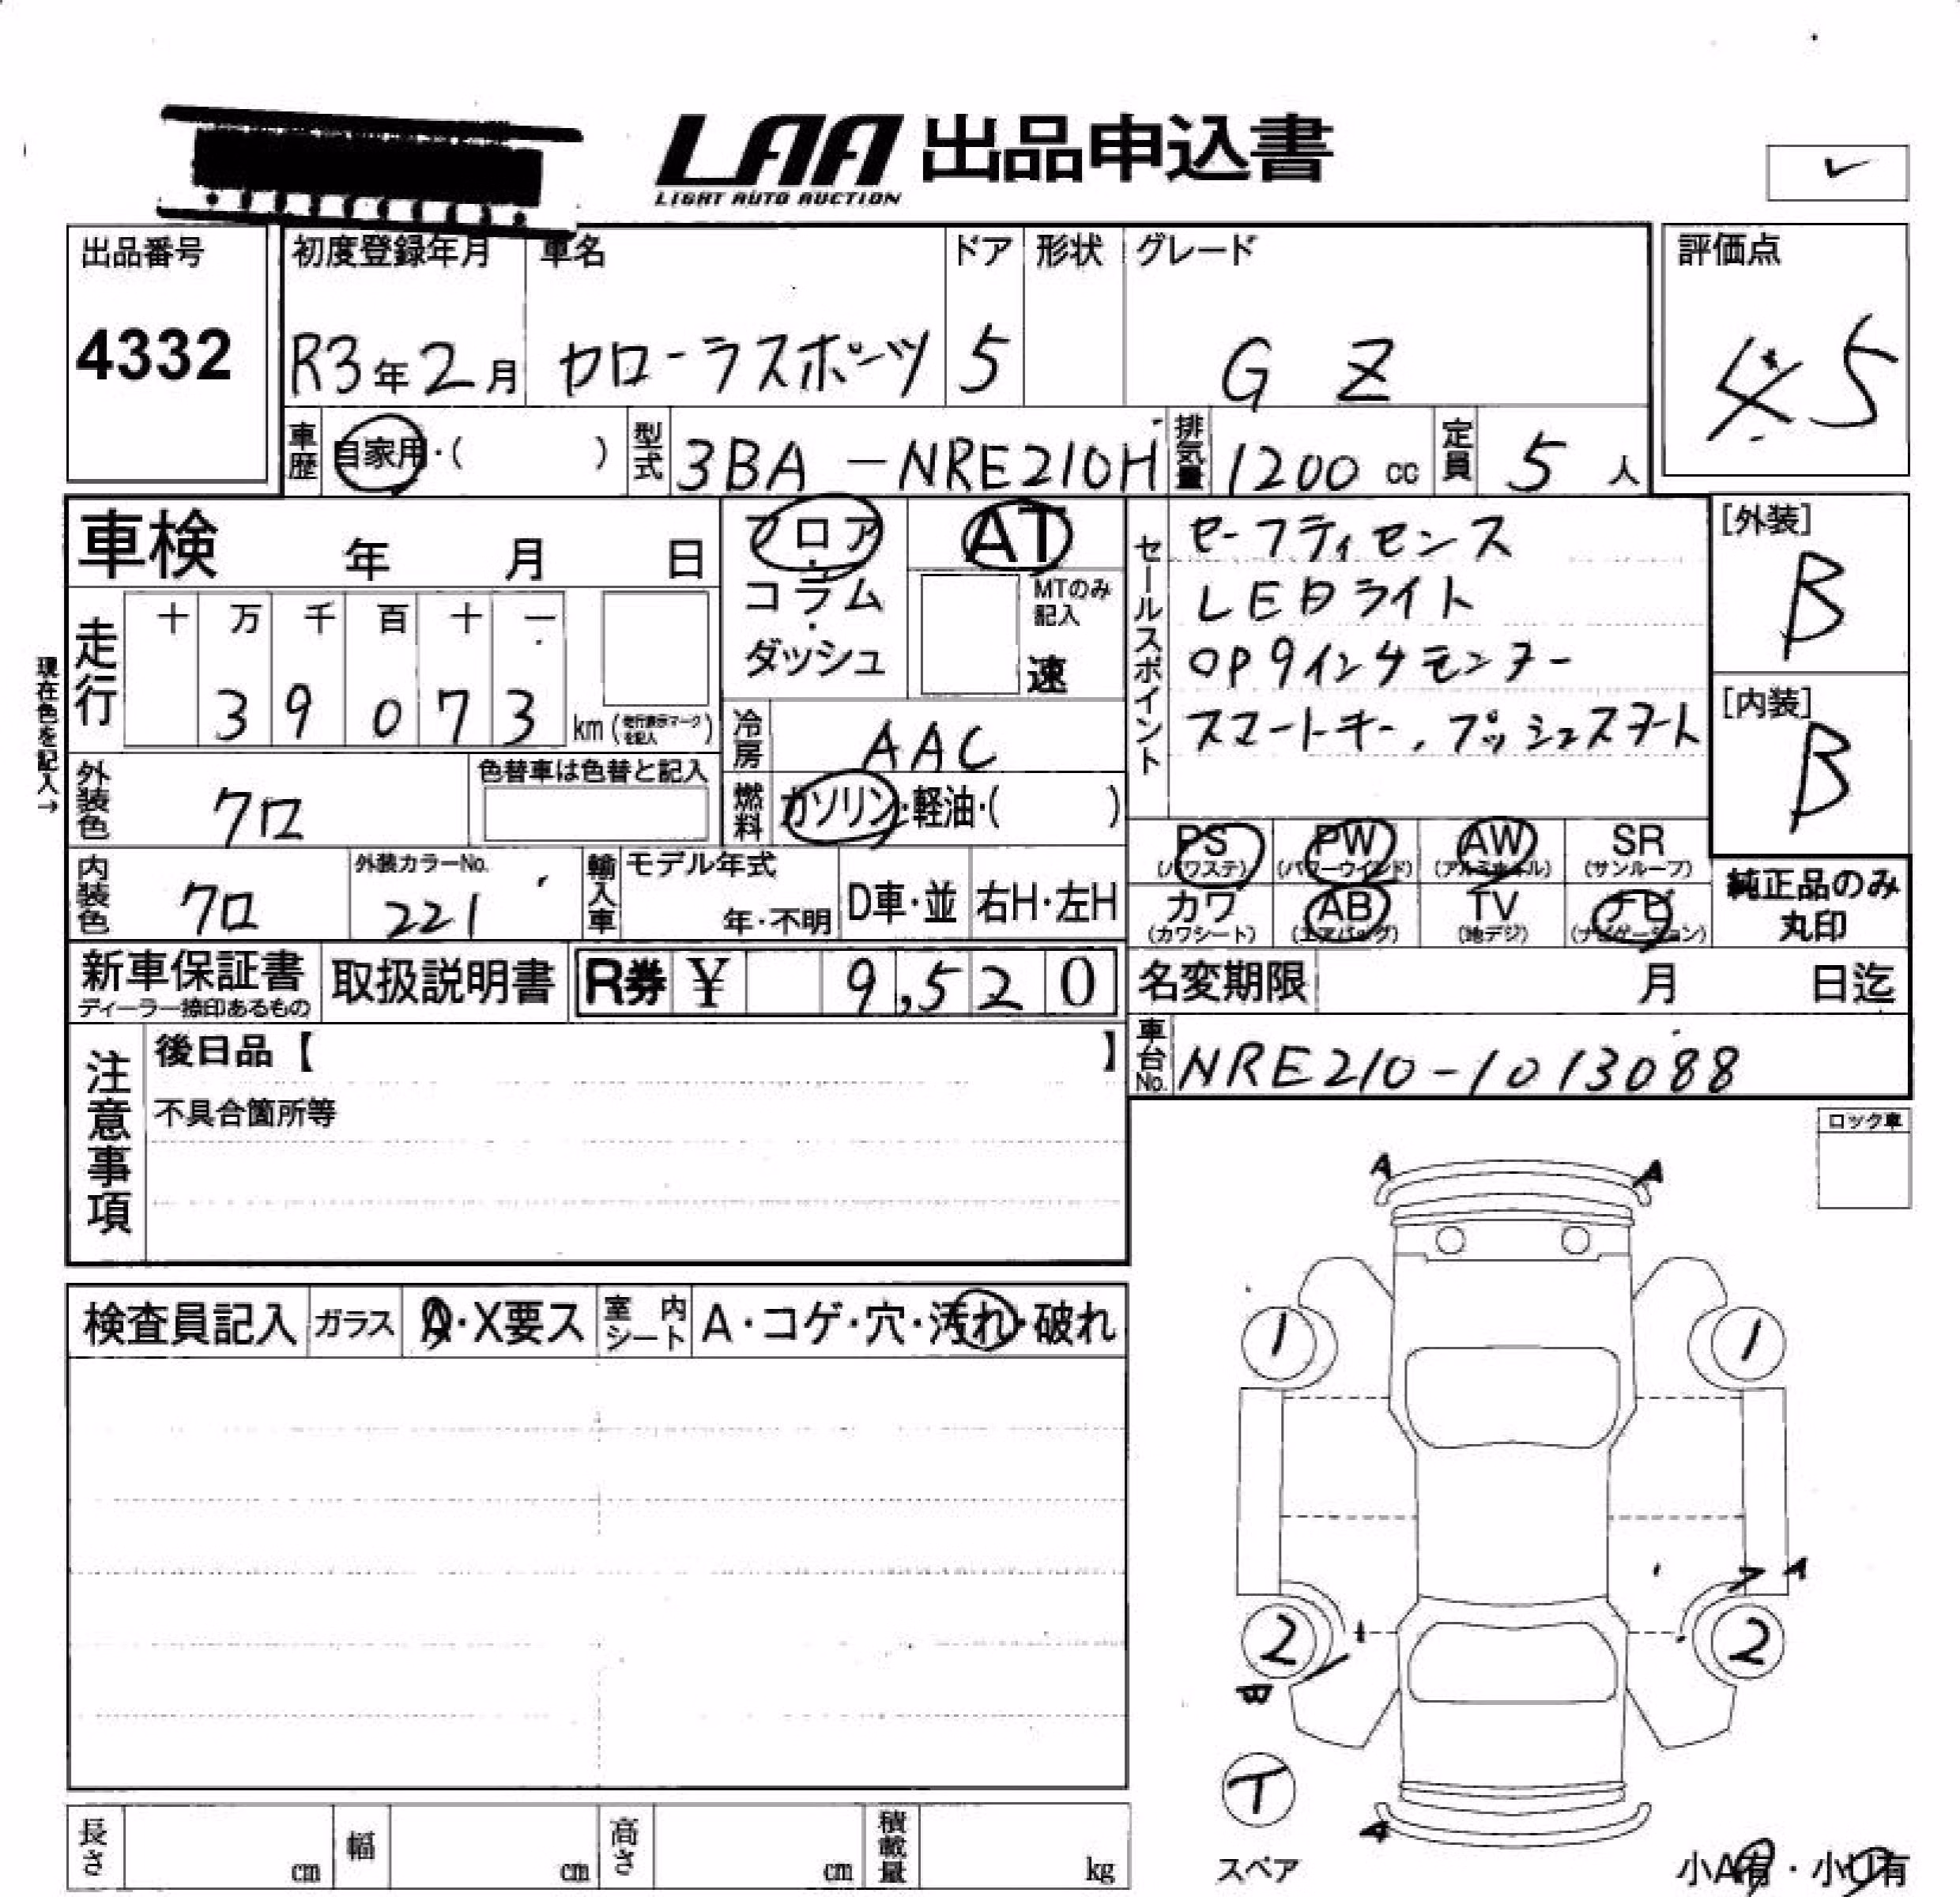 LAA 出品申込書
LIGHT AUTO AUCTION
出品番号 初度登録年月 車名 ドア 形状 グレード 評価点
4332 R3年2月 カローラスポーツ 5 G Z 5
車歴 自家用・( ) 型式 3BA-NRE210H 排気量 1200 cc 定員 5 人
車検 年 月 日
フロア・コラム・ダッシュ
AT
MTのみ記入
速
セールスポイント
セーフティセンス
LEDライト
OP9インチモニター
スマートキー、プッシュスタート
[外装]
B
[内装]
B
現在色を記入→
走行 十 万 千 百 十 一
3 9 0 7 3 km (走行表示マークを記入)
冷房 AAC
外装色 クロ 色替車は色替と記入
燃料 ガソリン・軽油・( )
内装色 クロ 外装カラーNo. 221 輸入車 モデル年式 年・不明 D車・並 右H・左H
PS (パワステ) PW (パワーウインド) AW (アルミホイル) SR (サンルーフ)
カワ (カワシート) AB (エアバッグ) TV (地デジ) ナビ (ナビゲーション)
純正品のみ
丸印
新車保証書 ディーラー捺印あるもの 取扱説明書 R券 ¥ 9,520
名変期限 月 日迄
車台No. NRE210-1013088
注意事項
後日品【 】
不具合箇所等
ロック車
A A
検査員記入 ガラス A・X要ス 室内シート A・コゲ・穴・汚れ・破れ
1 1
A
2 2
T
スペア
A
小A有・小U有
長さ cm 幅 cm 高さ cm 積載量 kg